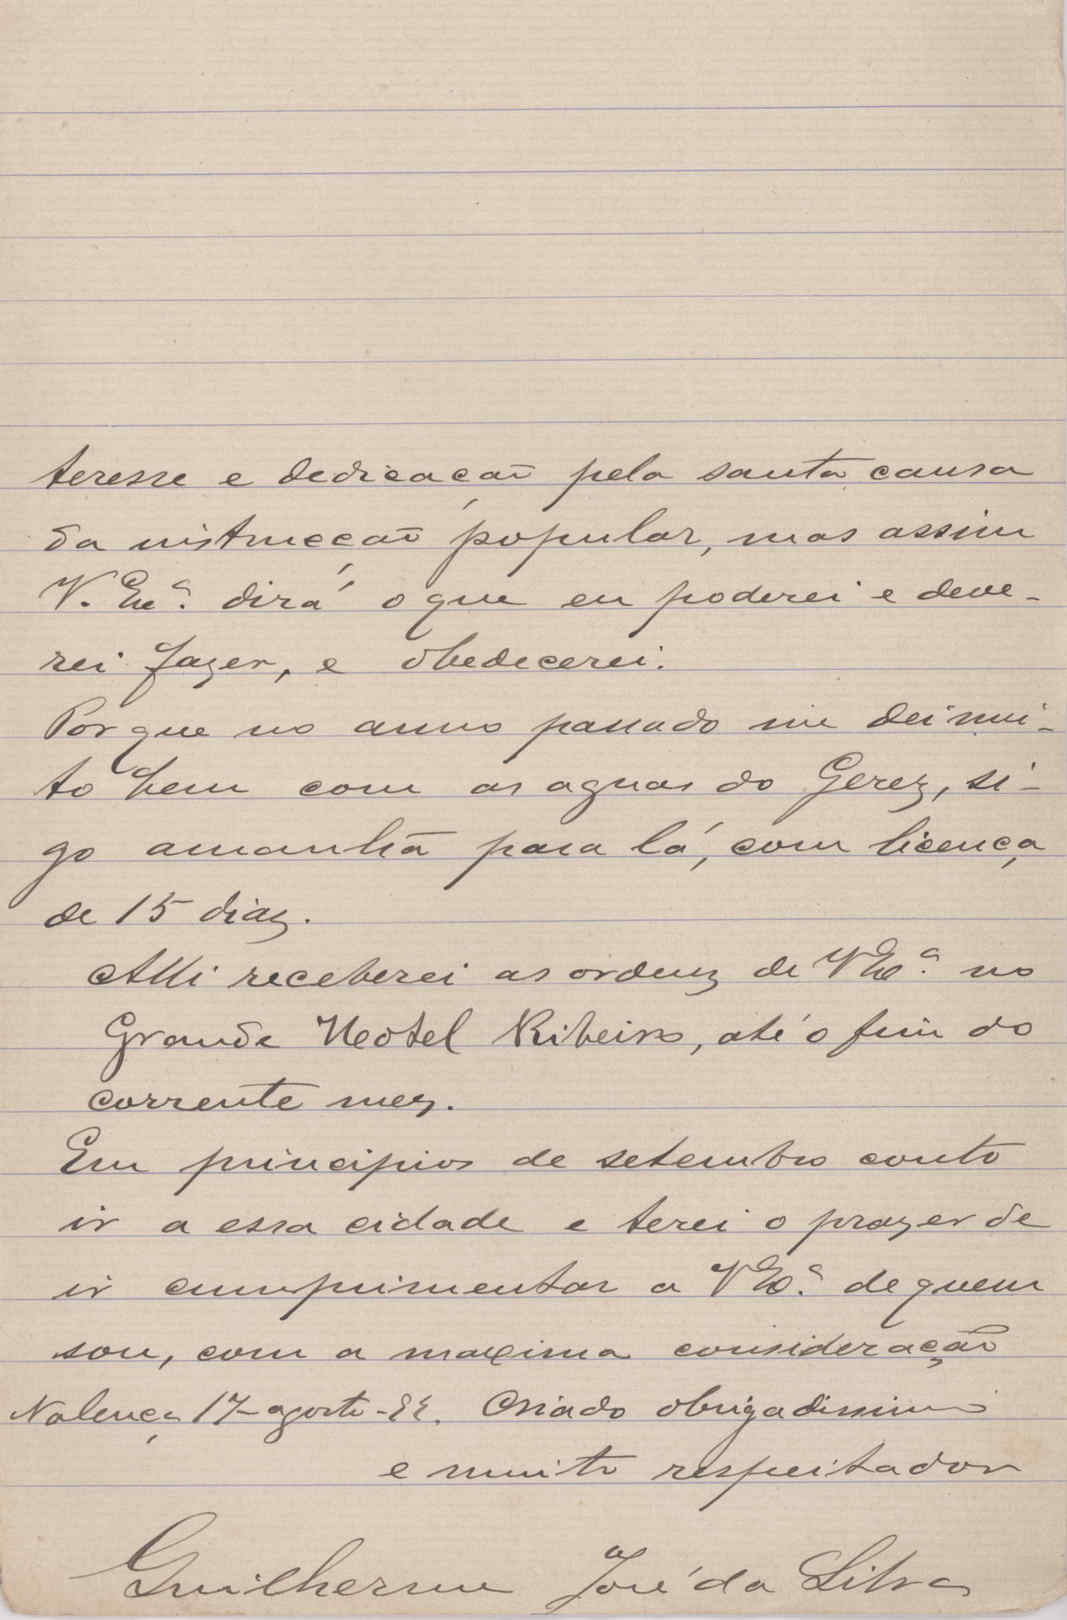 teresse e dedicação pela santa causa
da instrucção popular, mas assim
V. Exª. dirá o que eu poderei e deve-
rei fazer, e obedecerei.
Porque no anno passado me dei mui-
to bem com as aguas do Gerez, si-
go amanhã para lá, com licença
de 15 dias.
Alli receberei as ordens de V Exª. no
Grande Hotel Ribeiro, até o fim do
corrente mez.
Em principios de setembro conto
ir a essa cidade e terei o prazer de
ir cumprimentar a V Exª. de quem
sou, com a maxima consideração
Valença 17-agosto- Criado obrigadissimo
e muito respeitador
Guilherme José da Silva